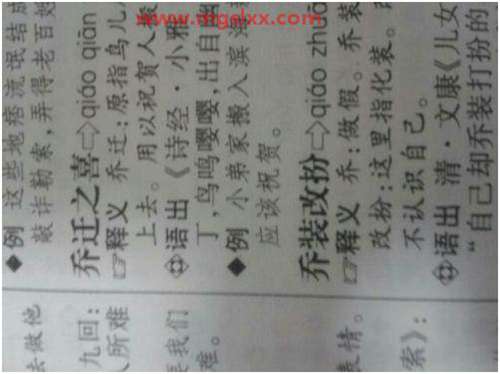 www.mgslxx.com
去做他
九回：
人所难
我们
难。
表情。
索》：
◆例 这些地痞流氓结成
敲诈勒索，弄得老百姓
乔迁之喜⇨qiáo qiān
☞释义 乔迁：原指鸟儿
上去。用以祝贺人搬
语出《诗经·小雅
丁，鸟鸣嘤嘤，出自幽
◆例 小弟家搬入滨海
应该祝贺。
乔装改扮⇨qiáo zhuā
☞释义 乔：做假。乔装
改扮：这里指化装。
不认识自己。
语出 清·文康《儿女
“自己却乔装打扮的